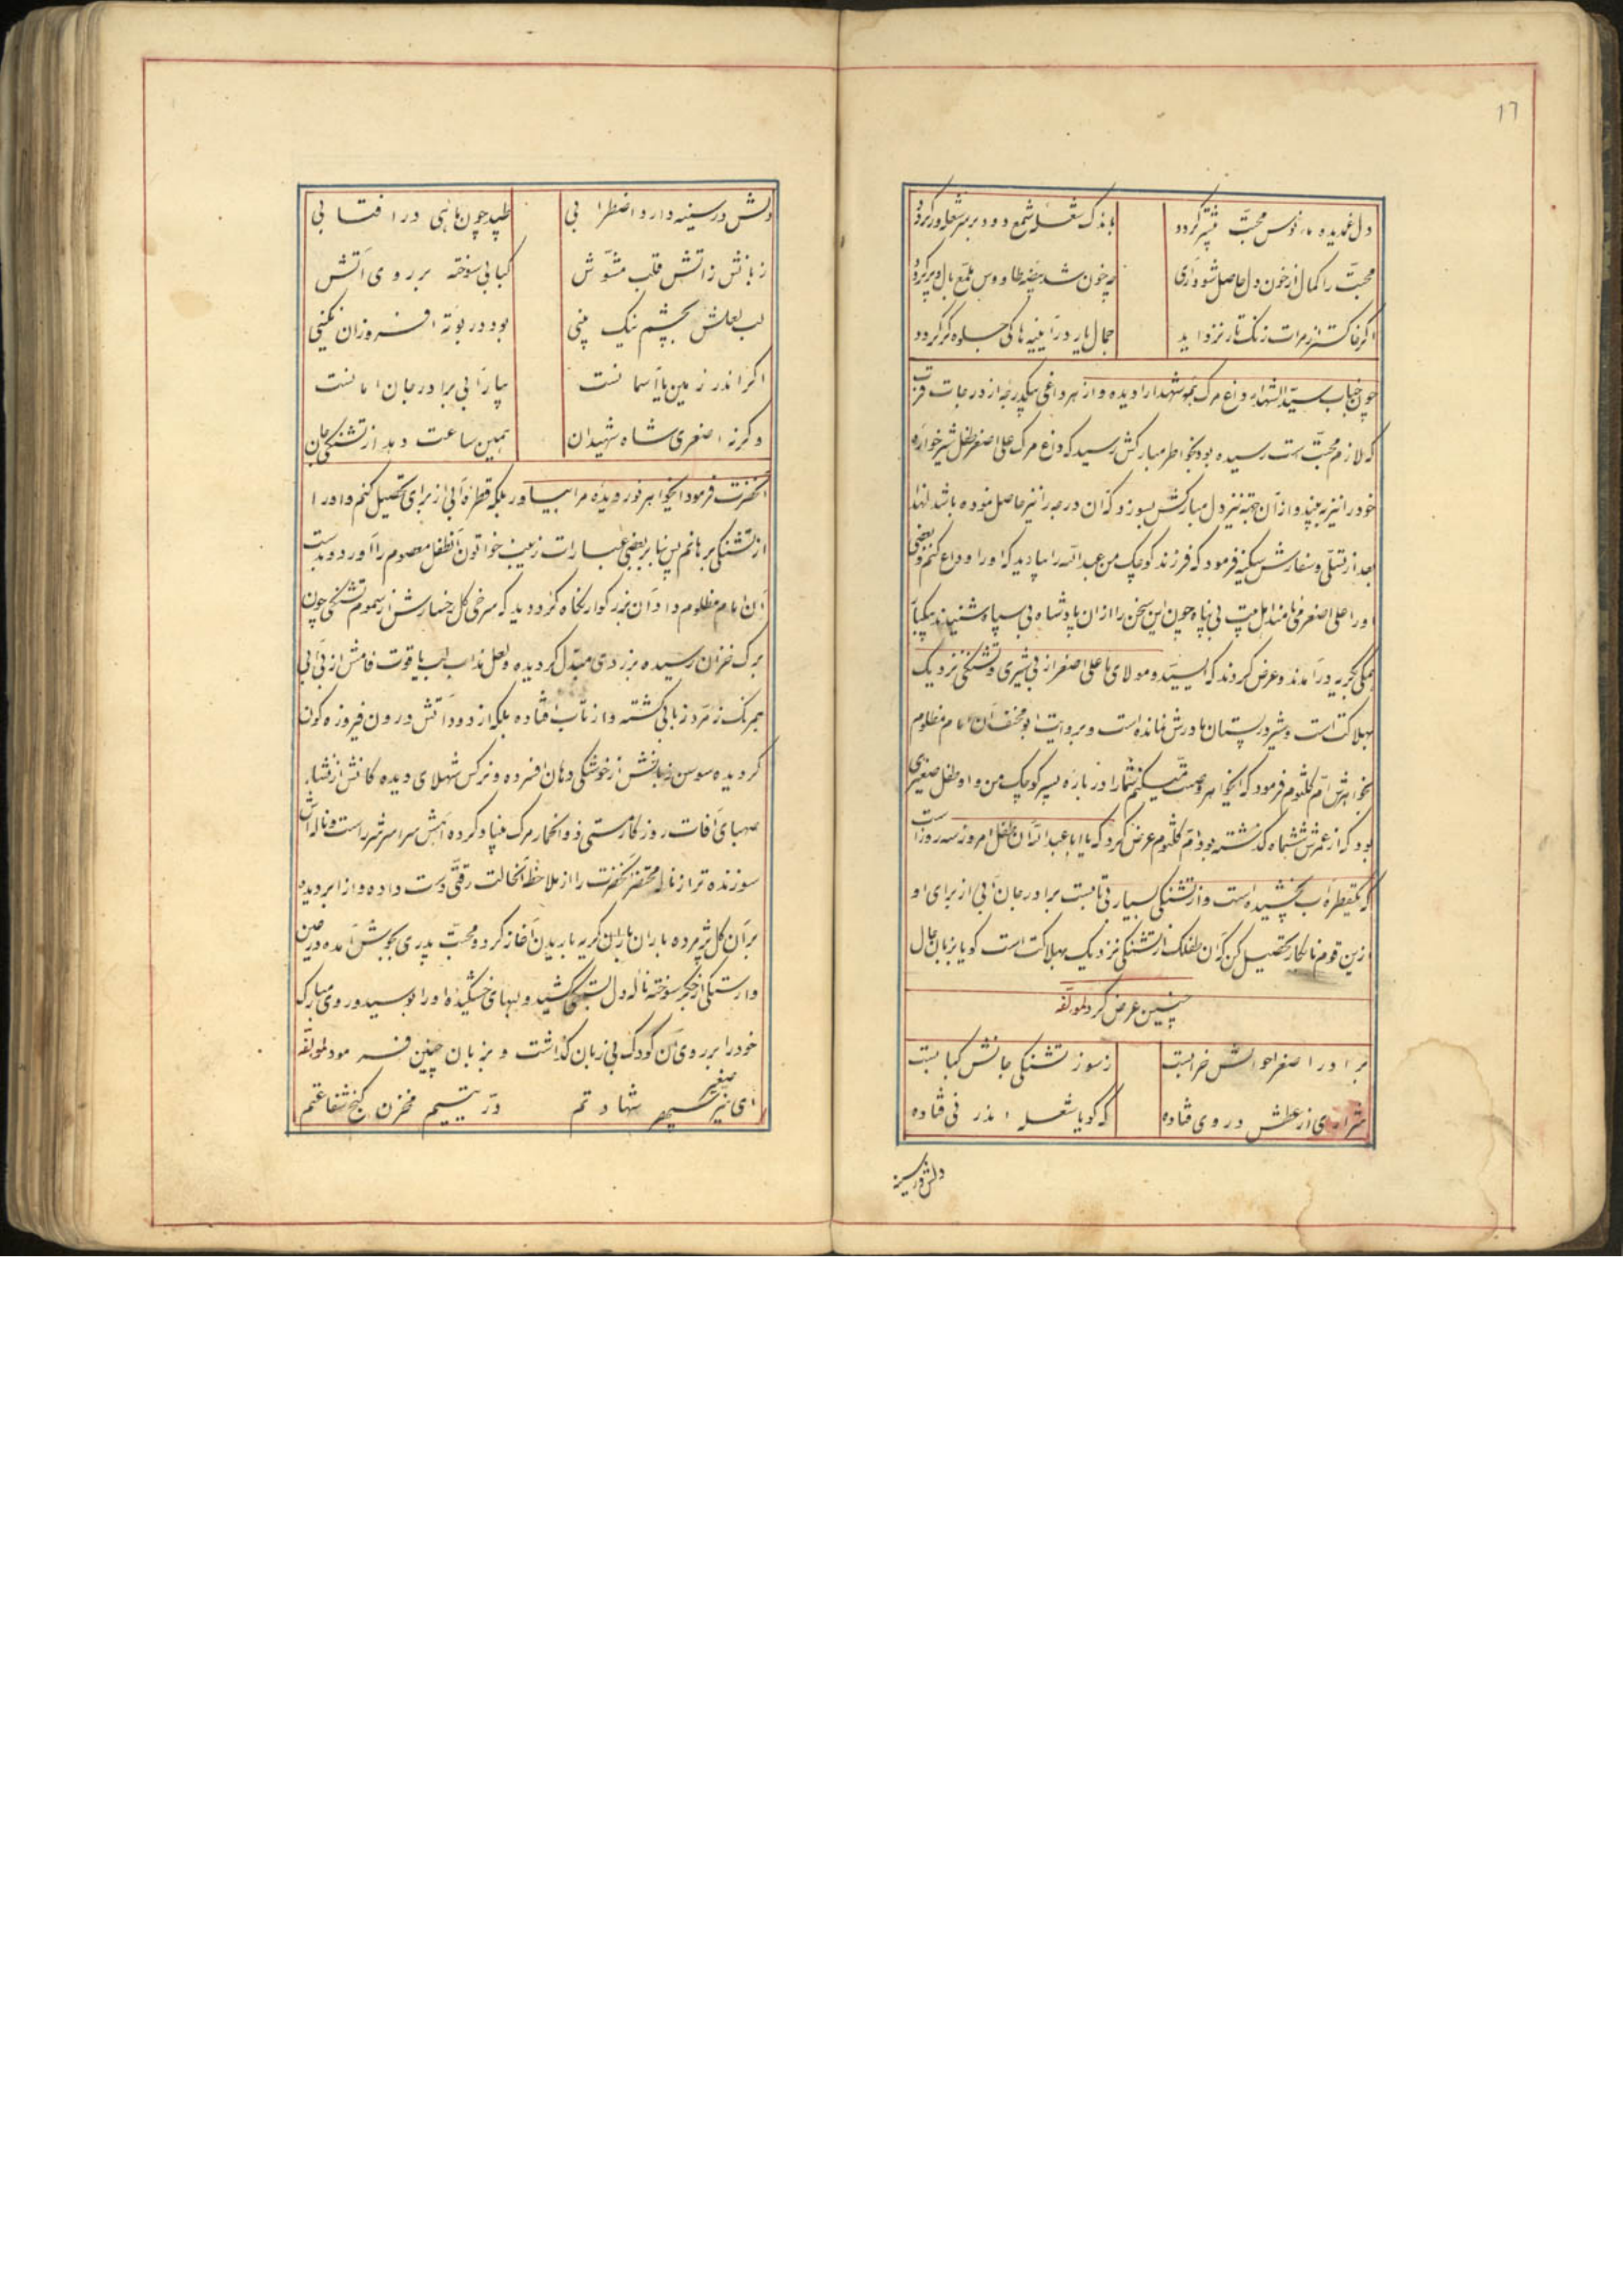 17
دل غمدیده مأنوس محبت شپّر گردد
باندک شعله شمع دود بر سر شعله‌ور گردد
محبّت را کمال از خون دل حاصل شود آری
چه خون شد بیضه طاووس ملمّع بال و پر گردد
اگر خاکستر از مرات زنک تار نزداید
جمال یار در آیینه ها کی جلوه کر گردد
چون جناب سیّد الشهداء داغ مرک همه شهدا را دیده و از هر داغی بیکدرجه از درجات قرب
که لازم محبّت است رسیده بود بخواطر مبارکش رسید که داغ مرک علی اصغر طفل شیرخواره
خود را نیز به بیند و از آن جهة نیز دل مبارکش بسوزد که آن درجه را نیز حاصل نموده باشد لهذا
بعد از تسلّی و سفارش سکینه فرمود که فرزند کوچک من عبد الله را بیارید که او را وداع کنم و بعضی
او را علی اصغر می نامند اهل بیت بی پناه چون این سخن را از ان پادشاه بی سپاه شنیدند بیکبار
همکی بگریه در آمدند و عرض کردند که ای سیّد و مولای ما علی اصغر از بی شیری و تشنکی نزدیک
بهلاکت است و شیر در پستان مادرش نمانده است و بروایت ابو مخنف آن امام مظلوم
بخواهرش امّ کلثوم فرمود که ایخواهر وصیت میکنم شما را در باره پسر کوچک من و او طفل صغیری
بود که از عمرش ششماه گذشته بود امّ کلثوم عرض کرد که یا ابا عبد الله آن طفل امروز سه روز است
که یکقطره آب نچشیده است و از تشنکی بسیار بی تابست برادر جان آبی از برای او
ازین قوم نابکار تحصیل کن که آن طفلک از تشنکی نزدیک بهلاکت است کویا بزبان حال
چنین عرض کرد لمولفه
برادر اصغر احوالش خرابست
ز سوز تشنکی جانش کبابست
شراری از عطش در وی فتاده
که کویا شعله اندر نی فتاده
دلش در سینه
دلش در سینه دارد اضطرابی
طپد چون ماهی در افتابی
زبانش ز اتش قلب مشوّش
کبابی سوخته بر روی آتش
لب لعلش بچشم نیک بینی
بود در بوته افروزان نکینی
اکر اندر زمین یا آسمانست
بیار آبی برادر جان امانست
وکرنه اصغر ی شاه شهیدان
همین ساعت دهد از تشنکی جان
آنحضرت فرمود ایخواهر نور دیده مرا بیاور بلکه قطره آبی از برای تحصیل کنم و او را
از تشنکی برهانم پس بنابر بعضی عبارات زینب خواتون آنطفل معصوم را آورد و بدست
آن امام مظلوم داد آن بزرکوار نکاه کرد دید که سرخی کل رخسارش از سموم تشنکی چون
برک خزان رسیده بزردی مبدّل کردیده و لعل مذاب لب یاقوت فامش از بی آبی
همرنک زمرّد زبانی کشته و از تاب افتاده بلکه از دود آتش درون فیروزه کون
کردیده سوسن زبانش از خوشکی دهان افسرده و نرکس شهلای دیده کانش از نشاء
صهبای آفات روزکار مستی ذو الخمار مرک بنیاد کرده آهش سراسر شرر است و ناله اش
سوزنده تر از ناله محتضر آنحضرت را از ملاحظه آنحالت رقتّی دست داده و از ابر دیده
بر آن کل پژمرده باران باران کریه باریدن آغاز کرد و محبّت پدری بجوش آمده در حین
وارستکی از جکر سوخته ناله دل شکافت کشید و لبهای خشکیده او را بوسید و روی مبارک
خود را بر روی آن کودک بی زبان کذاشت و بزبان چنین فرمود لمولفه
ای نیّر صغیر سپهر شهادتم
درّ یتیم مخزن کنج شفاعتم